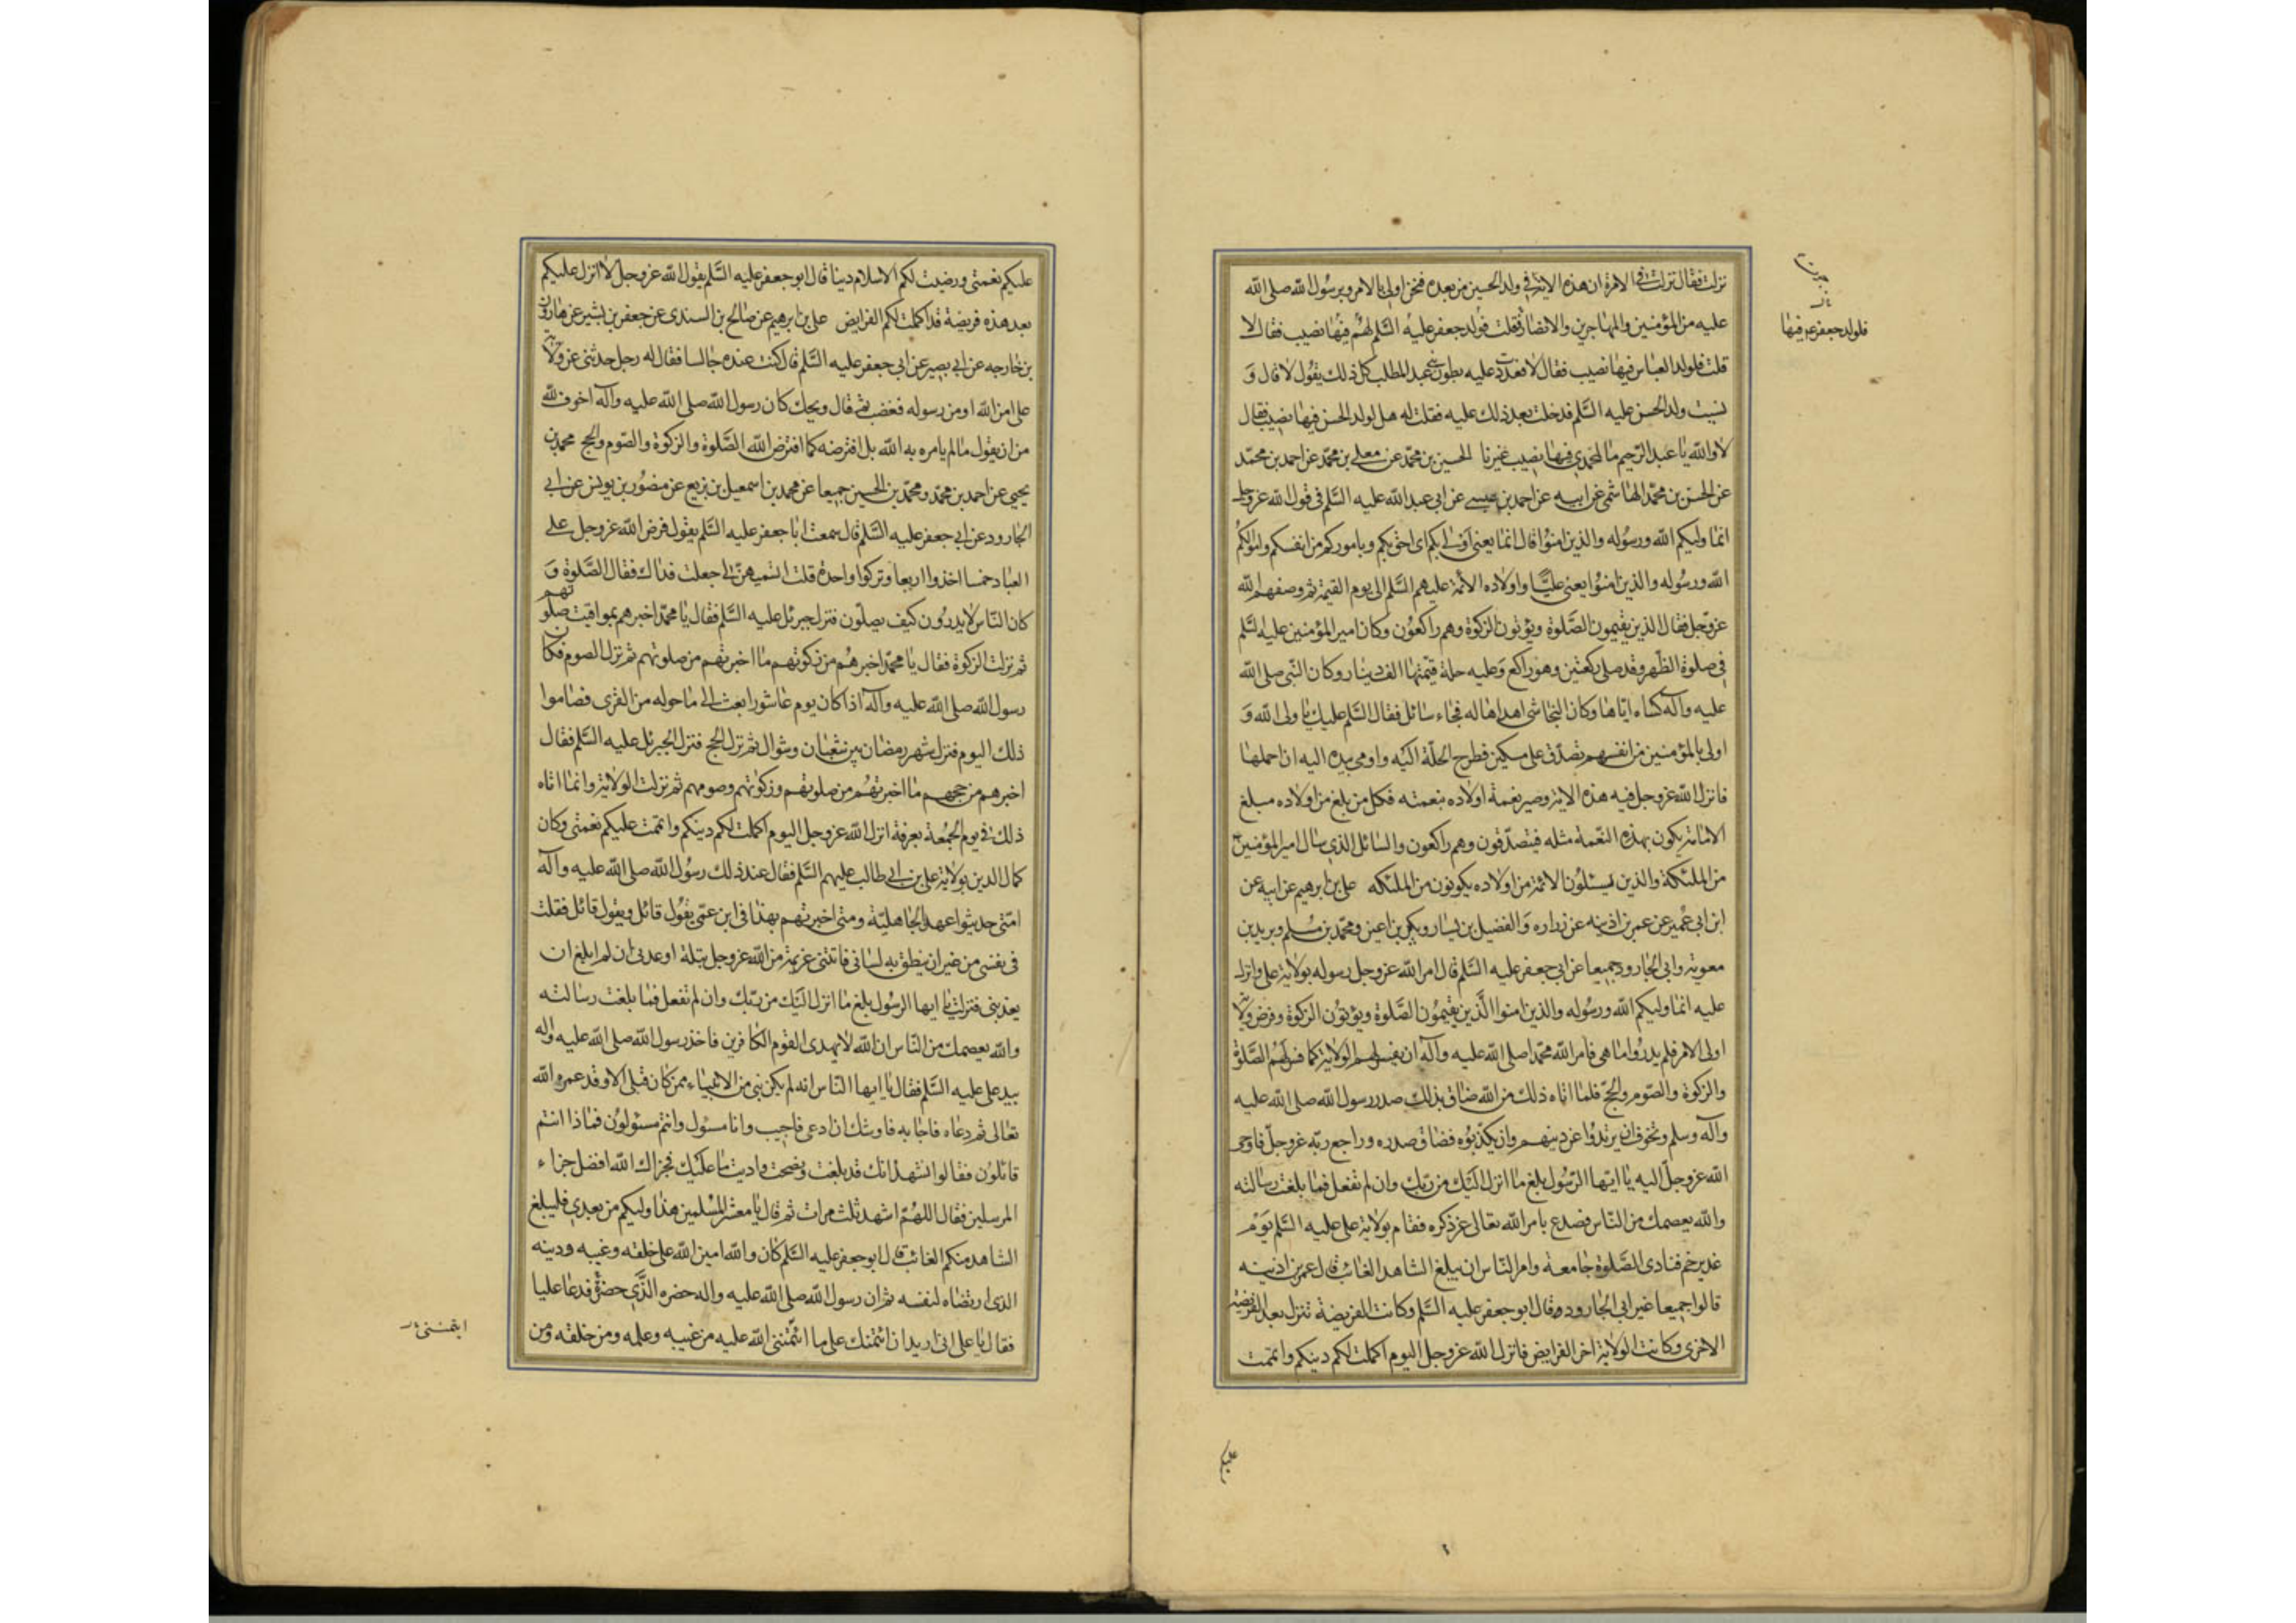 نزلت فقال نزلت في الامرة ان هذه الاية في ولد الحسين من بعده فنحن اولى بالامر وبرسول الله صلى الله
عليه من المؤمنين والمهاجرين والانصار فقلت فولد جعفر عليه السلم لهم فيها نصيب فقال لا
قلت فلولد العباس فيها نصيب فقال لا فعددت عليه بطون بني عبد المطلب كل ذلك يقول لا قال و
نسيت ولد الحسن عليه السلم فدخلت بعد ذلك عليه فقلت له هل لولد الحسن فيها نصيب فقال
لا والله يا عبد الرحيم ما لمحمدي فيها نصيب غيرنا الحسين بن محمد عن معلى بن محمد عن احمد بن محمد
عن الحسن بن محمد الهاشمي عن ابيه عن احمد بن عيسى عن ابي عبد الله عليه السلم في قول الله عز وجل
انما وليكم الله ورسوله والذين امنوا قال انما يعني اولى بكم اى احق بكم وباموركم من انفسكم واموالكم
الله ورسوله والذين امنوا يعني عليا واولاده الائمة عليهم السلم الى يوم القيمة ثم وصفهم الله
عز وجل فقال الذين يقيمون الصلوة ويؤتون الزكوة وهم راكعون وكان امير المؤمنين عليه السلم
في صلوة الظهر وقد صلى ركعتين وهو راكع وعليه حلة قيمتها الف دينار وكان النبي صلى الله
عليه وآله كساه اياها وكان النجاشي اهداها له فجاء سائل فقال السلم عليك يا ولى الله و
اولى بالمؤمنين من انفسهم تصدق على مسكين فطرح الحلة اليه واومى بيده اليه ان احملها
فانزل الله عز وجل فيه هذه الاية وصير نعمة اولاده بنعمته فكل من بلغ من اولاده مبلغ
الامامة يكون بهذه النعمة مثله فيتصدقون وهم راكعون والسائل الذي سال امير المؤمنين
من الملئكة والذين يسئلون الائمة من اولاده يكونون من الملئكه على بن ابرهيم عن ابيه عن
ابن ابي عمير عن عمر بن اذينه عن زراره والفضيل بن يسار وبكير بن اعين ومحمد بن مسلم وبريد بن
معوية وابى الجارود جميعا عن ابي جعفر عليه السلم قال امر الله عز وجل رسوله بولاية على وانزل
عليه انما وليكم الله ورسوله والذين امنوا الذين يقيمون الصلوة ويؤتون الزكوة وفرض ولاية
اولى الامر فلم يدروا ما هي فامر الله محمدا صلى الله عليه وآله ان يفسر لهم الولاية كما فسر لهم الصلوة
والزكوة والصوم والحج فلما اتاه ذلك من الله ضاق بذلك صدر رسول الله صلى الله عليه
وآله وسلم وتخوف ان يرتدوا عن دينهم وان يكذبوه فضاق صدره وراجع ربه عز وجل فاوحى
الله عز وجل اليه يا ايها الرسول بلغ ما انزل اليك من ربك وان لم تفعل فما بلغت رسالته
والله يعصمك من الناس فصدع بامر الله تعالى عز ذكره فقام بولاية على عليه السلم يوم
غدير خم فنادى الصلوة جامعة وامر الناس ان يبلغ الشاهد الغائب قال عمر بن اذينه
قالوا جميعا غير ابى الجارود وقال ابو جعفر عليه السلم وكانت الفريضة تنزل بعد الفريضة
الاخرى وكانت الولاية اخر الفرايض فانزل الله عز وجل اليوم اكملت لكم دينكم واتممت
فلولد جعفر فيها
عليكم نعمتى ورضيت لكم الاسلام دينا قال ابو جعفر عليه السلم يقول الله عز وجل لا انزل عليكم
بعد هذه فريضة قد اكملت لكم الفرايض على بن ابرهيم عن صالح بن السندى عن جعفر بن بشير عن هارون
بن خارجه عن ابي بصير عن ابي جعفر عليه السلم قال كنت عنده جالسا فقال له رجل حدثنى عن ولاية
على امن الله او من رسوله فغضب ثم قال ويحك كان رسول الله صلى الله عليه وآله اخوف لله
من ان يقول ما لم يامره به الله بل افترضه كما افترض الله الصلوة والزكوة والصوم والحج محمد بن
يحيى عن احمد بن محمد ومحمد بن الحسين جميعا عن محمد بن اسمعيل بن بزيع عن منصور بن يونس عن ابي
الجارود عن ابي جعفر عليه السلم قال سمعت ابا جعفر عليه السلم يقول فرض الله عز وجل على
العباد خمسا اخذوا اربعا وتركوا واحدة قلت اتسميهن لى جعلت فداك فقال الصلوة و
كان الناس لا يدرون كيف يصلون فنزل جبرئل عليه السلم فقال يا محمد اخبرهم بمواقيت صلوتهم
ثم نزلت الزكوة فقال يا محمد اخبرهم من زكوتهم ما اخبرتهم من صلوتهم ثم نزل الصوم فكان
رسول الله صلى الله عليه وآله اذا كان يوم عاشورا بعث الى ما حوله من القرى فصاموا
ذلك اليوم فنزل شهر رمضان بين شعبان وشوال ثم نزل الحج فنزل جبرئل عليه السلم فقال
اخبرهم من حجهم ما اخبرتهم من صلوتهم وزكوتهم وصومهم ثم نزلت الولاية وانما اتاه
ذلك في يوم الجمعة بعرفة انزل الله عز وجل اليوم اكملت لكم دينكم واتممت عليكم نعمتى وكان
كمال الدين بولاية على بن ابى طالب عليهم السلم فقال عند ذلك رسول الله صلى الله عليه وآله
امتى حديثوا عهد بالجاهلية ومتى اخبرتهم بهذا فى ابن عمى يقول قائل ويقول قائل فقلت
فى نفسى من غير ان ينطق به لسانى فاتتنى عزيمة من الله عز وجل بتلة اوعدنى ان لم ابلغ ان
يعذبنى فنزلت يا ايها الرسول بلغ ما انزل اليك من ربك وان لم تفعل فما بلغت رسالته
والله يعصمك من الناس ان الله لا يهدى القوم الكافرين فاخذ رسول الله صلى الله عليه واله
بيد على عليه السلم فقال يا ايها الناس انه لم يكن نبى من الانبياء ممن كان قبلى الا وقد عمره الله
تعالى ثم دعاه فاجابه فاوشك ان ادعى فاجيب وانا مسئول وانتم مسئولون فماذا انتم
قائلون فقالوا نشهد انك قد بلغت ونصحت واديت ما عليك فجزاك الله افضل جزاء
المرسلين فقال اللهم اشهد ثلث مرات ثم قال يا معشر المسلمين هذا وليكم من بعدي فليبلغ
الشاهد منكم الغائب قال ابو جعفر عليه السلم كان والله امين الله على خلقه وغيبه ودينه
الذى ارتضاه لنفسه ثم ان رسول الله صلى الله عليه واله حضره الذي حضره فدعا عليا
فقال يا على انى اريد ان ائتمنك على ما ائتمننى الله عليه من غيبه وعلمه ومن خلقه ومن
ايتمننى